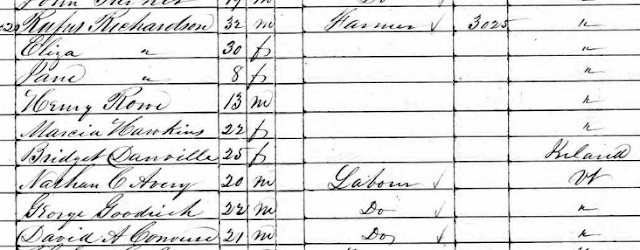 Rufus Richardson 32 m Farmer 3025 "
Eliza " 30 f "
Jane " 8 f "
Henry Rowe 13 m "
Marcia Hawkins 22 f "
Bridget Danville 25 f Ireland
Nathan C Avery 20 m Labour Vt
George Goodrich 22 m Do "
David A Converse 21 m Do "